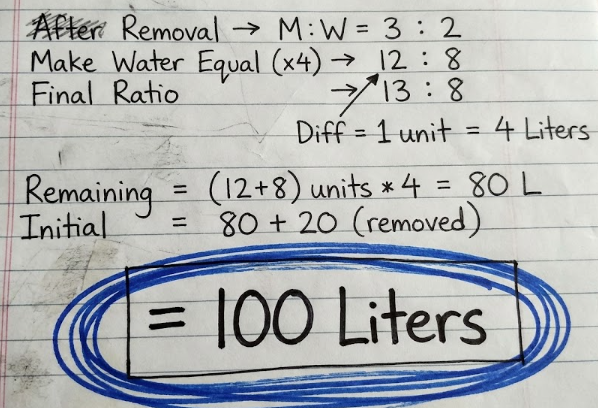 After Removal → M:W = 3 : 2
Make Water Equal (x4) → 12 : 8
Final Ratio → 13 : 8
Diff = 1 unit = 4 Liters
Remaining = (12+8) units * 4 = 80 L
Initial = 80 + 20 (removed)
= 100 Liters